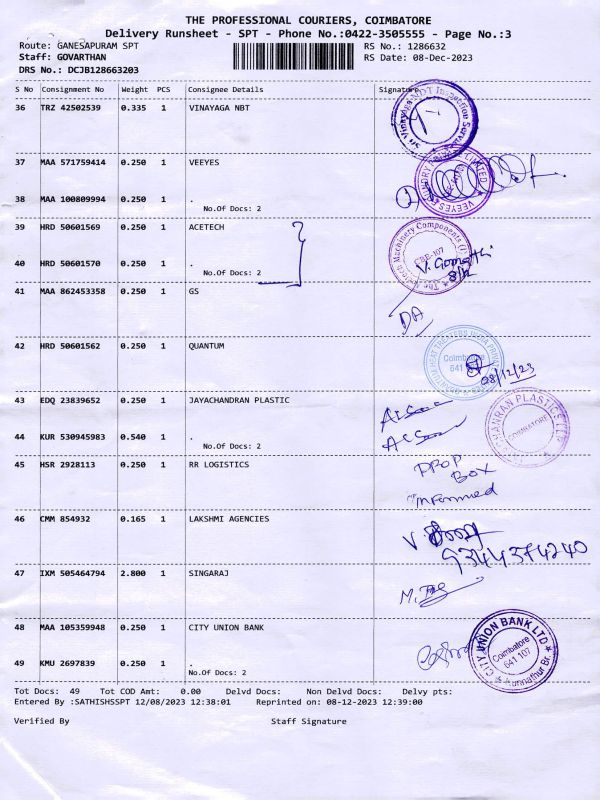 THE PROFESSIONAL COURIERS, COIMBATORE
Delivery Runsheet - SPT - Phone No.:0422-3505555 - Page No.:3
Route: GANESAPURAM SPT RS No.: 1286632
Staff: GOVARTHAN RS Date: 08-Dec-2023
DRS No.: DCJB128663203
S No Consignment No Weight PCS Consignee Details Signature
36 TRZ 42502539 0.335 1 VINAYAGA NBT
37 MAA 571759414 0.250 1 VEEYES
38 MAA 100809994 0.250 1 .
No.Of Docs: 2
39 HRD 50601569 0.250 1 ACETECH
40 HRD 50601570 0.250 1 .
No.Of Docs: 2
V. Gomathi
41 MAA 862453358 0.250 1 GS
DA
42 HRD 50601562 0.250 1 QUANTUM
Coimbatore
641
08/12/23
43 EDQ 23839652 0.250 1 JAYACHANDRAN PLASTIC
COIMBATORE
44 KUR 530945983 0.540 1 .
No.Of Docs: 2
45 HSR 2928113 0.250 1 RR LOGISTICS
DROP
BOX
informed
46 CMM 854932 0.165 1 LAKSHMI AGENCIES
9344374240
47 IXM 505464794 2.800 1 SINGARAJ
48 MAA 105359948 0.250 1 CITY UNION BANK
CITY UNION BANK LTD
Coimbatore
641 107
49 KMU 2697839 0.250 1 .
No.Of Docs: 2
Tot Docs: 49 Tot COD Amt: 0.00 Delvd Docs: Non Delvd Docs: Delvy pts:
Entered By :SATHISHSSPT 12/08/2023 12:38:01 Reprinted on: 08-12-2023 12:39:00
Verified By Staff Signature